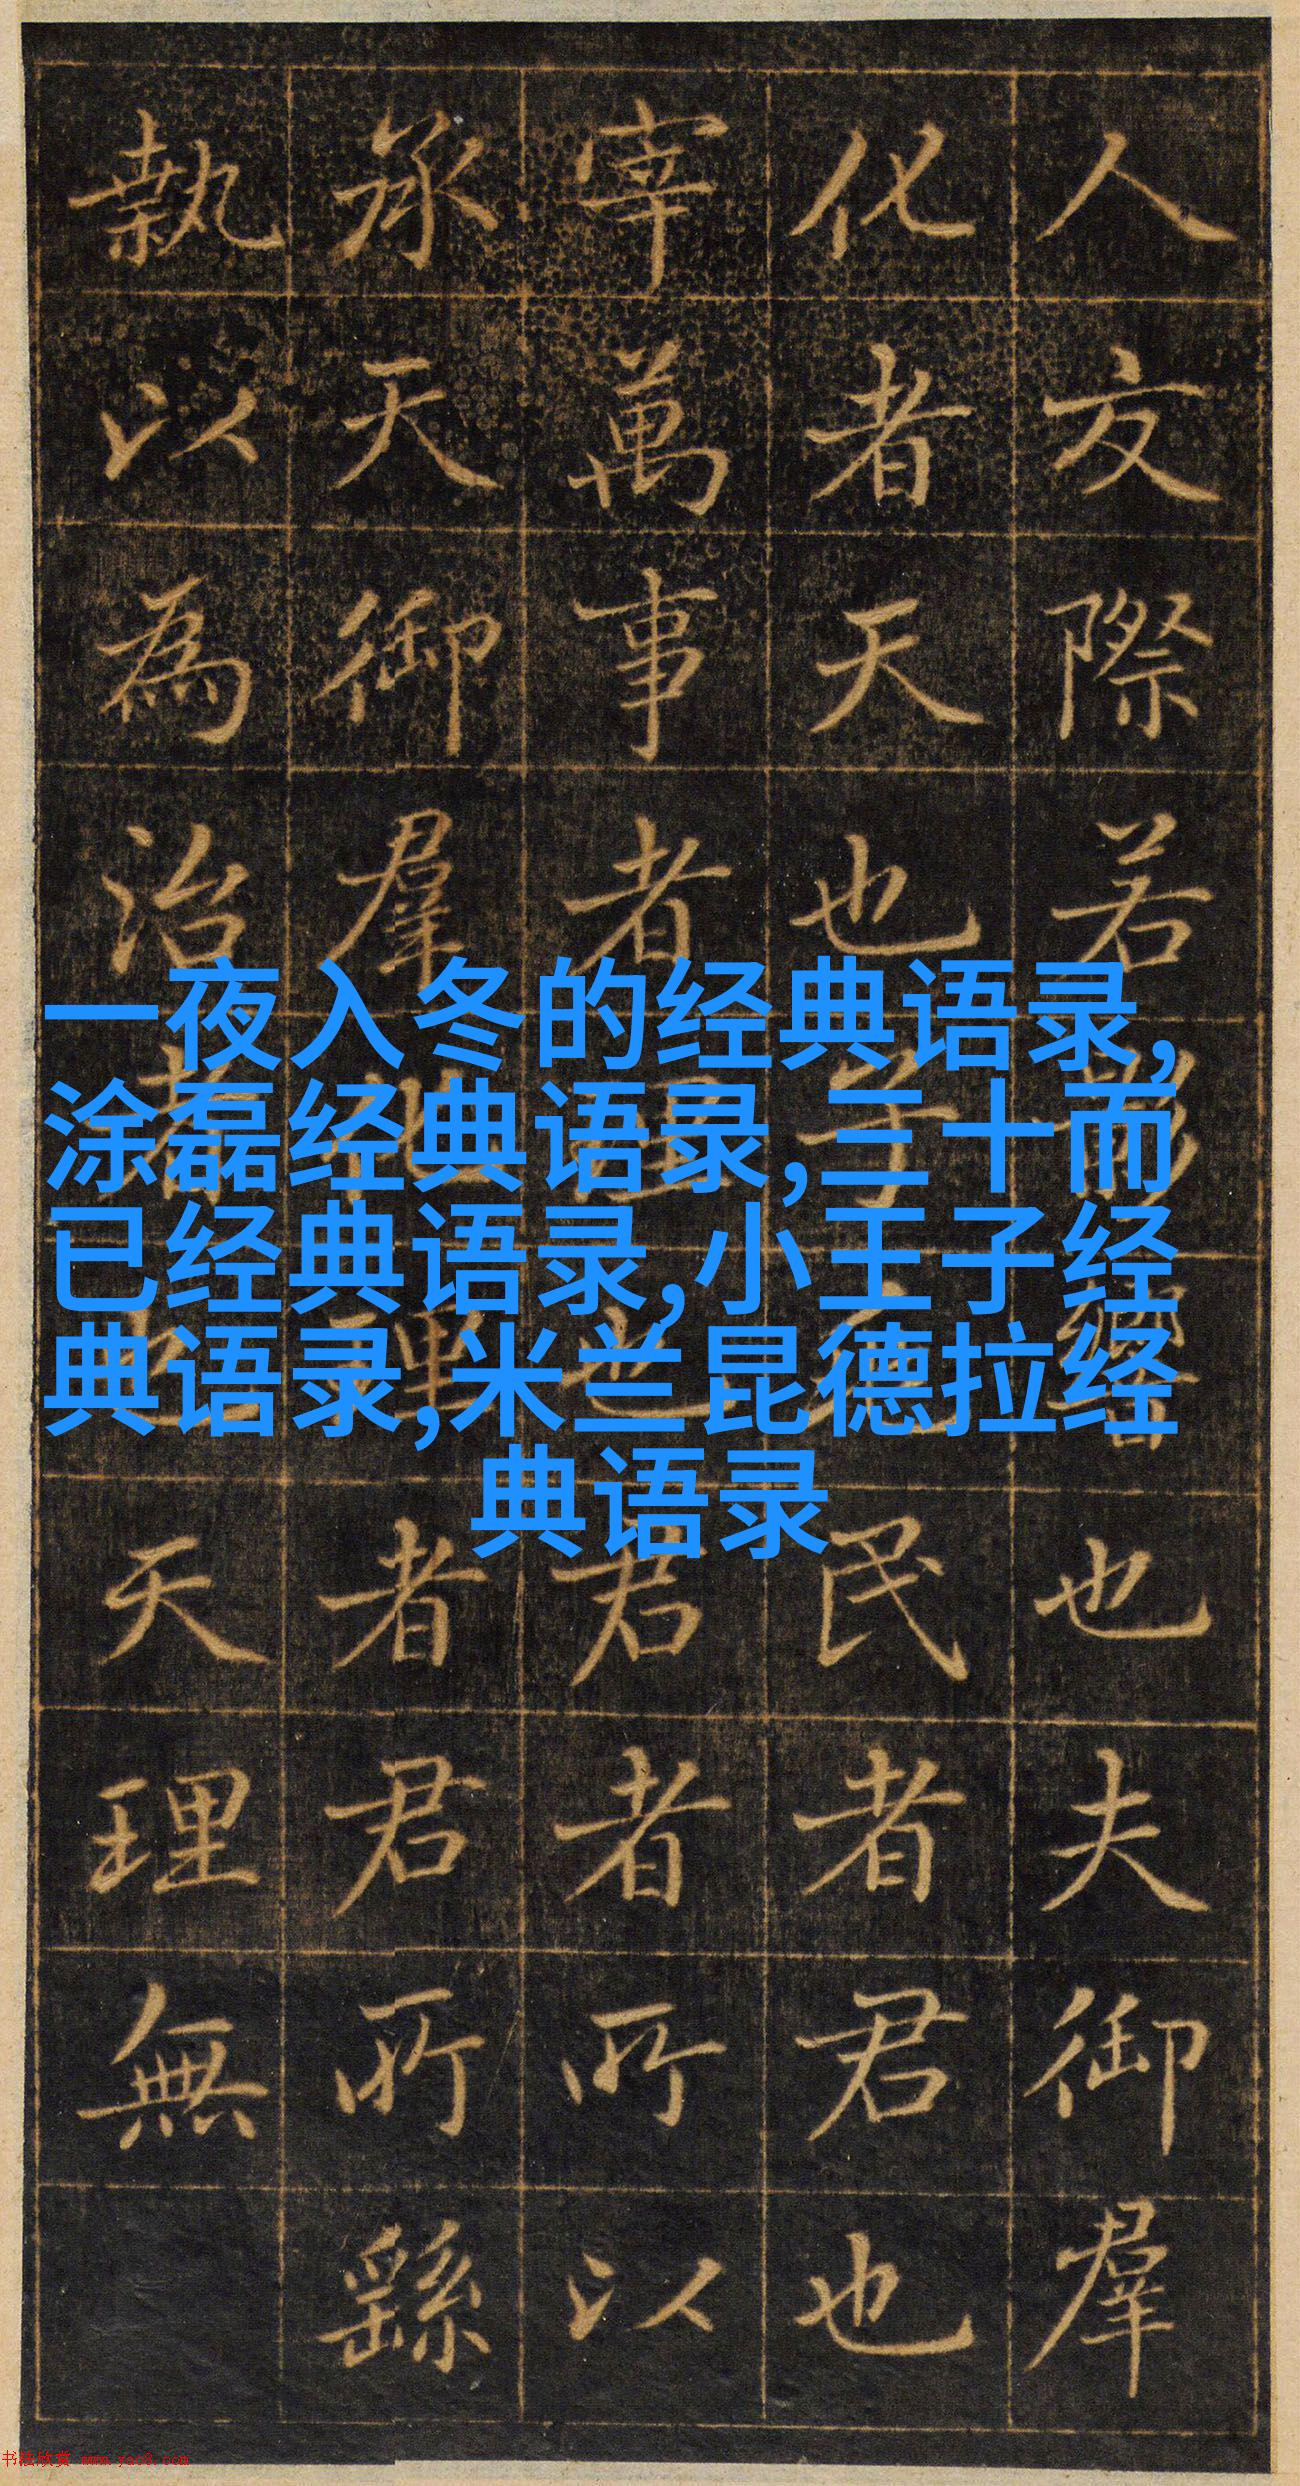 人交際若影響也夫御羣
化者天也子民者君也
宰萬事者也君者所以
承天御羣理者君所繇
執以為治者天理無
一夜入冬的经典语录,
涂磊经典语录,三十而
已经典语录,小王子经
典语录,米兰昆德拉经
典语录
书法欣赏 www.yac8.com